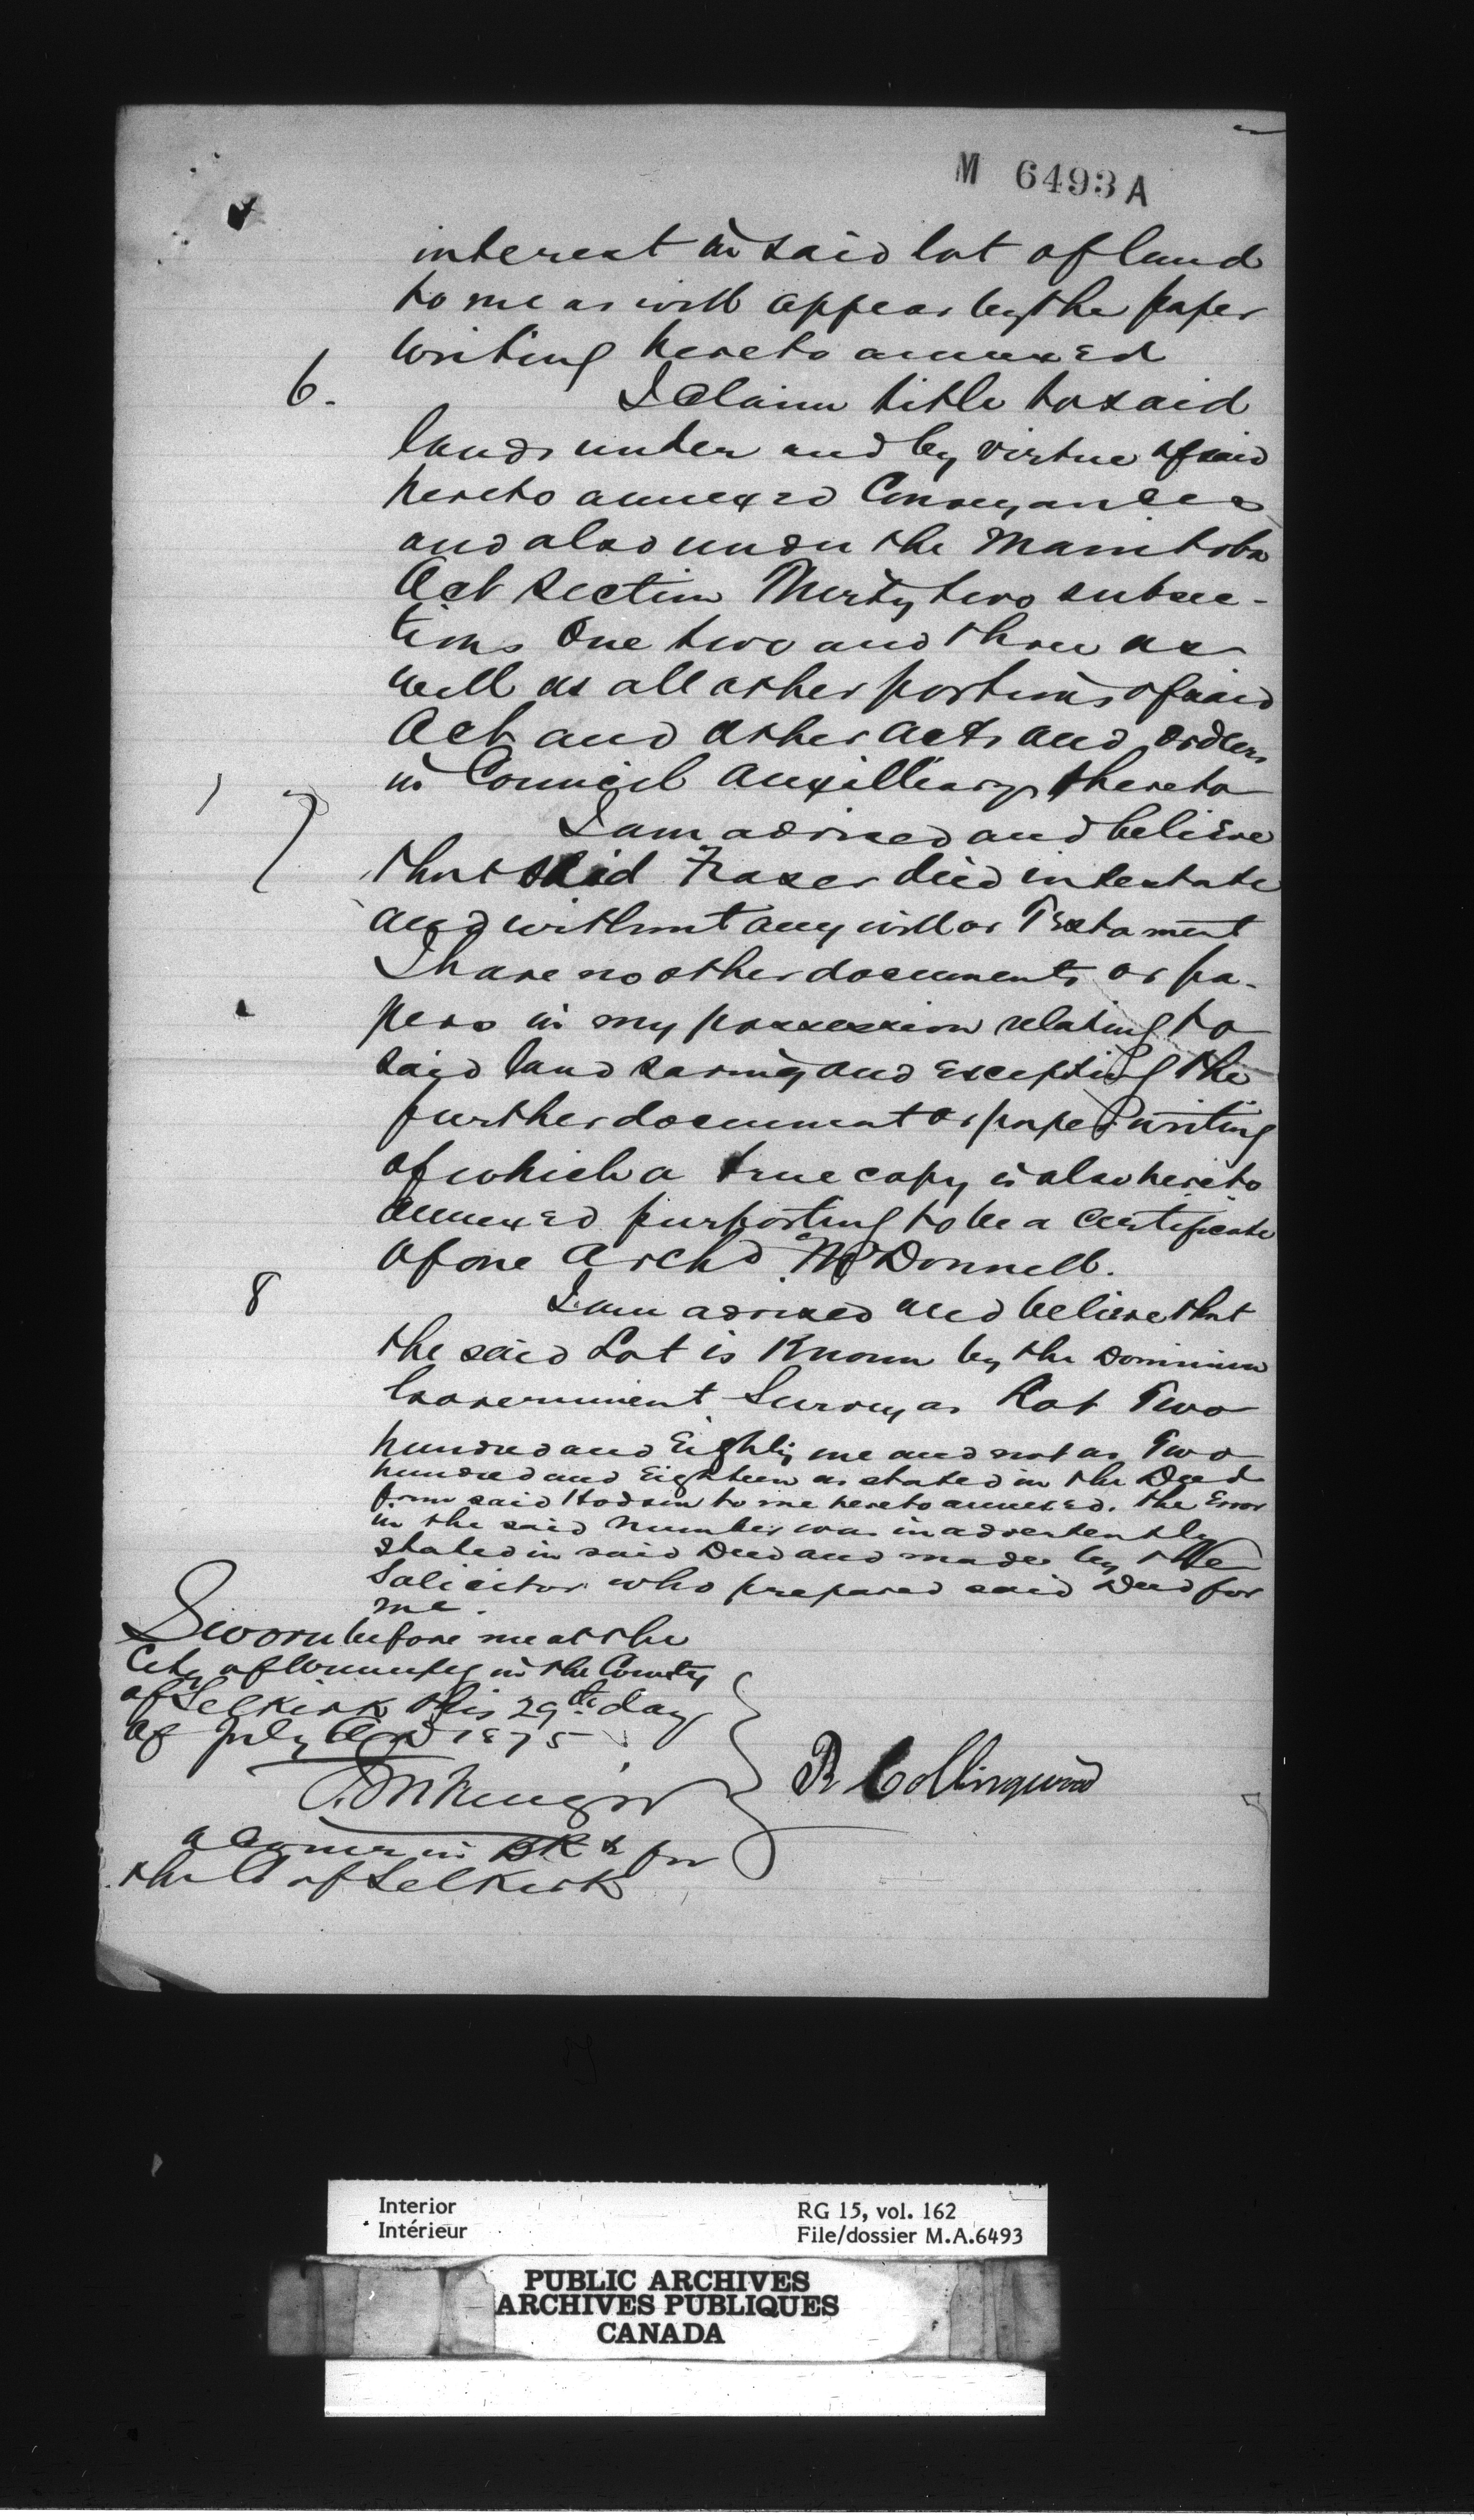 M 6493 A
interest in said lot of land
to me as will appear by the paper
writing hereto annexed
6. I Claim title to said
lands under and by virtue of said
hereto annexed Conveyances
and also under the Manitoba
Act Section Thirty two subsec-
tions One two and three as
well as all other portions of said
Act and other Acts and orders
in Council Auxilliary thereto
7 I am advised and believe
that said Frazer died intestate
and without any will or Testament
I have no other documents or pa-
pers in my possession relating to
said land saving and excepting the
further document or paper writing
of which a true copy is also hereto
annexed purporting to be a Certificate
of one Archd McDonnell.
8 I am advised and believe that
the said Lot is Known by the Dominion
Government Survey as Lot Two
hundred and Eighty one and not as Two
hundred and Eighteen as stated in the Deed
from said Hodson to me hereto annexed. The Error
in the said Number was inadvertently
stated in said Deed and made by the
Solicitor who prepared said Deed for
me.
Sworn before me at the
City of Winnipeg in the County
of Selkirk this 29th day
of July AD 1875
R Collingwood
a Commr in BR & for
the Co of Selkirk
Interior
Intérieur
RG 15, vol. 162
File/dossier M.A.6493
PUBLIC ARCHIVES
ARCHIVES PUBLIQUES
CANADA